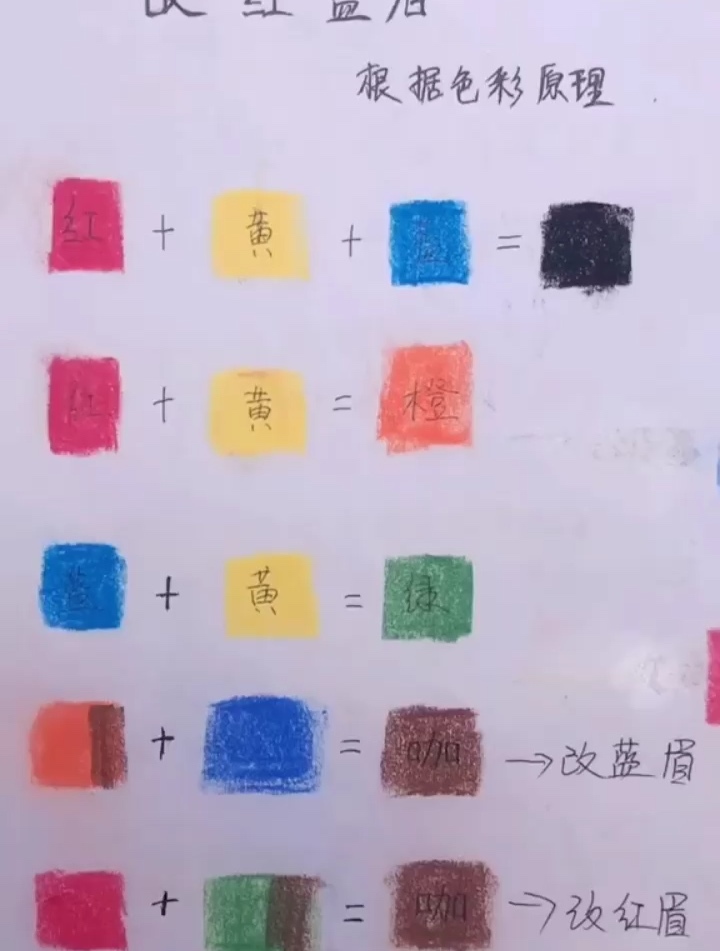 改红蓝眉
根据色彩原理
红 + 黄 + 蓝 =
红 + 黄 = 橙
蓝 + 黄 = 绿
+ = 咖 →改蓝眉
+ = 咖 →改红眉